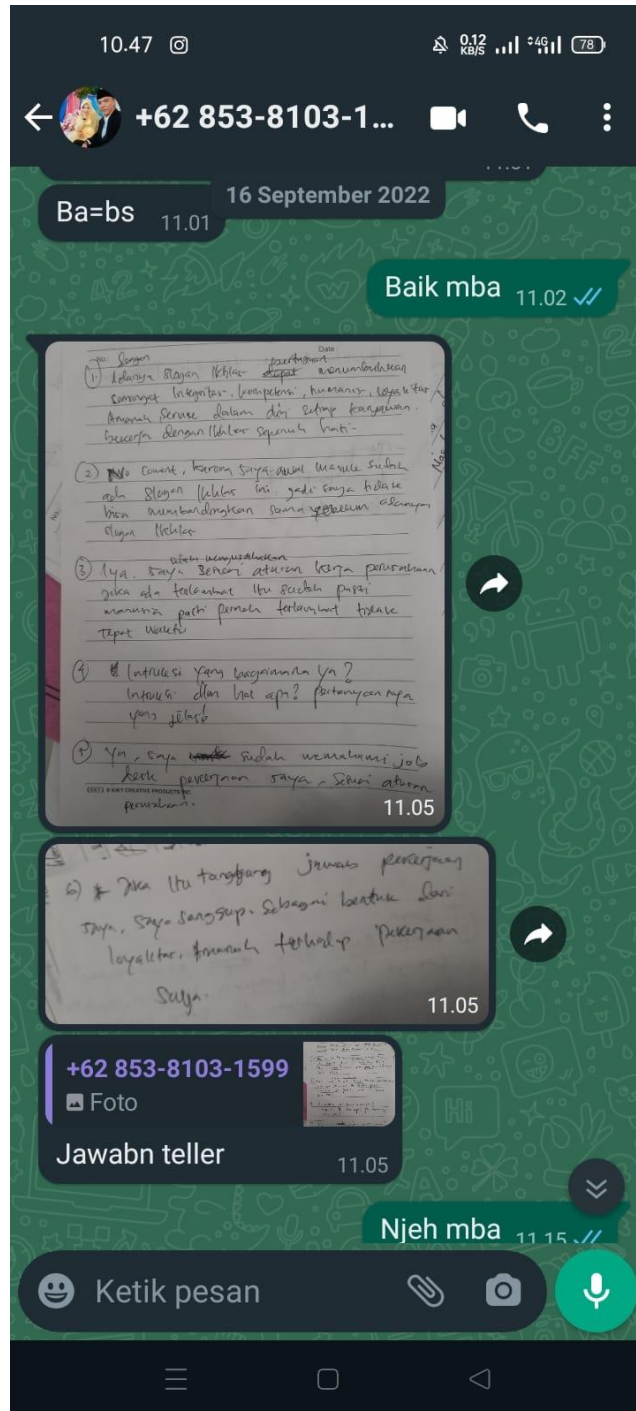 10.47
0.12 KB/S 4G 78
+62 853-8103-1...
16 September 2022
Ba=bs 11.01
Baik mba 11.02
No: Slogan Date:
(1). Adanya slogan Ikhlas dapat menumbuhkan
semangat Integritas, kompetensi, humanis, loyalitas
Amanah Service dalam diri setiap karyawan.
bekerja dengan Ikhlas sepenuh hati.
(2) No coment, karena saya awal masuk sudah
ada slogan Ikhlas ini jadi saya tidak
bisa membandingkan sebelum adanya
slogan Ikhlas
(3) Iya, saya sesuai aturan kerja perusahaan
jika ada terlambat itu sudah pasti
manusia pasti pernah terlambat tidak
tepat waktu
(4) Intruksi yang bagaimana ya?
Intruksi dlm hal apa? pertanyaan
yang jelas
(5) Ya, saya sudah memahami job
desk pekerjaan saya, sesuai aturan
perusahaan.
11.05
6) Jika itu tanggung jawab pekerjaan
saya, saya sanggup. Sebagai bentuk dari
loyalitas, Amanah terhadap pekerjaan
saya.
11.05
+62 853-8103-1599
Foto
Jawabn teller 11.05
Njeh mba 11.15
Ketik pesan